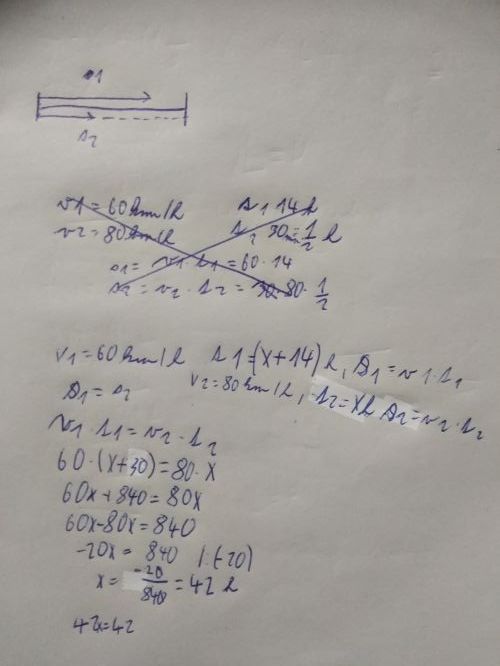 s1
s2
v1 = 60km/h t1 14h
v2 = 80km/h t2 30min = 1/2 h
s1 = v1 · t1 = 60 · 14
s2 = v2 · t2 = 80 · 1/2
v1 = 60km/h t1 = (x+14)h, s1 = v1 · t1
v2 = 80km/h, t2 = xh s2 = v2 · t2
s1 = s2
v1 · t1 = v2 · t2
60 · (x+30) = 80 · x
60x + 840 = 80x
60x - 80x = 840
-20x = 840 |:(-20)
x = -20/840 = 42 h